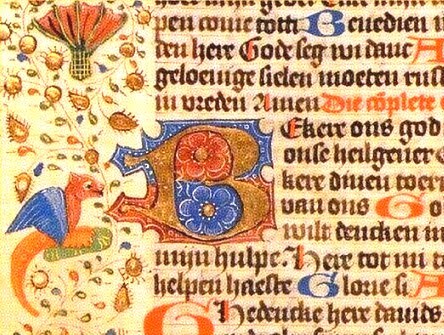 pen totti Benedien
den here Gode seg wi danc A
geloeuige sielen moeten rust
in vreden Amen Die cōplete
BEkere ons god
onse heilgeuer
kere dinen toer
van ons Go
wilt dencken in
mijn hulpe. Here tot mi
helpen haeste Glorie si. A
Ghedencke here dauid